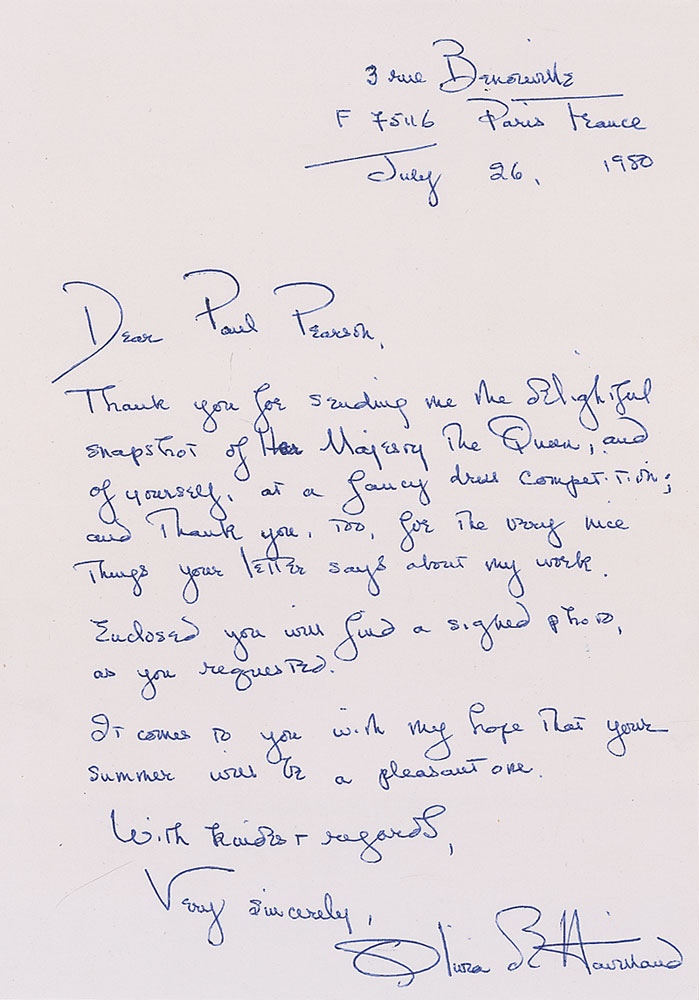 3 rue Benouville
F 75116 Paris France
July 26, 1980
Dear Paul Pearson,
Thank you for sending me the delightful
snapshot of Her Majesty The Queen, and
of yourself, at a fancy dress competition;
and Thank you, too, for the very nice
Things your letter says about my work.
Enclosed you will find a signed photo,
as you requested.
It comes to you with my hope that your
summer will be a pleasant one.
With kindest regards,
Very sincerely,
Olivia de Havilland